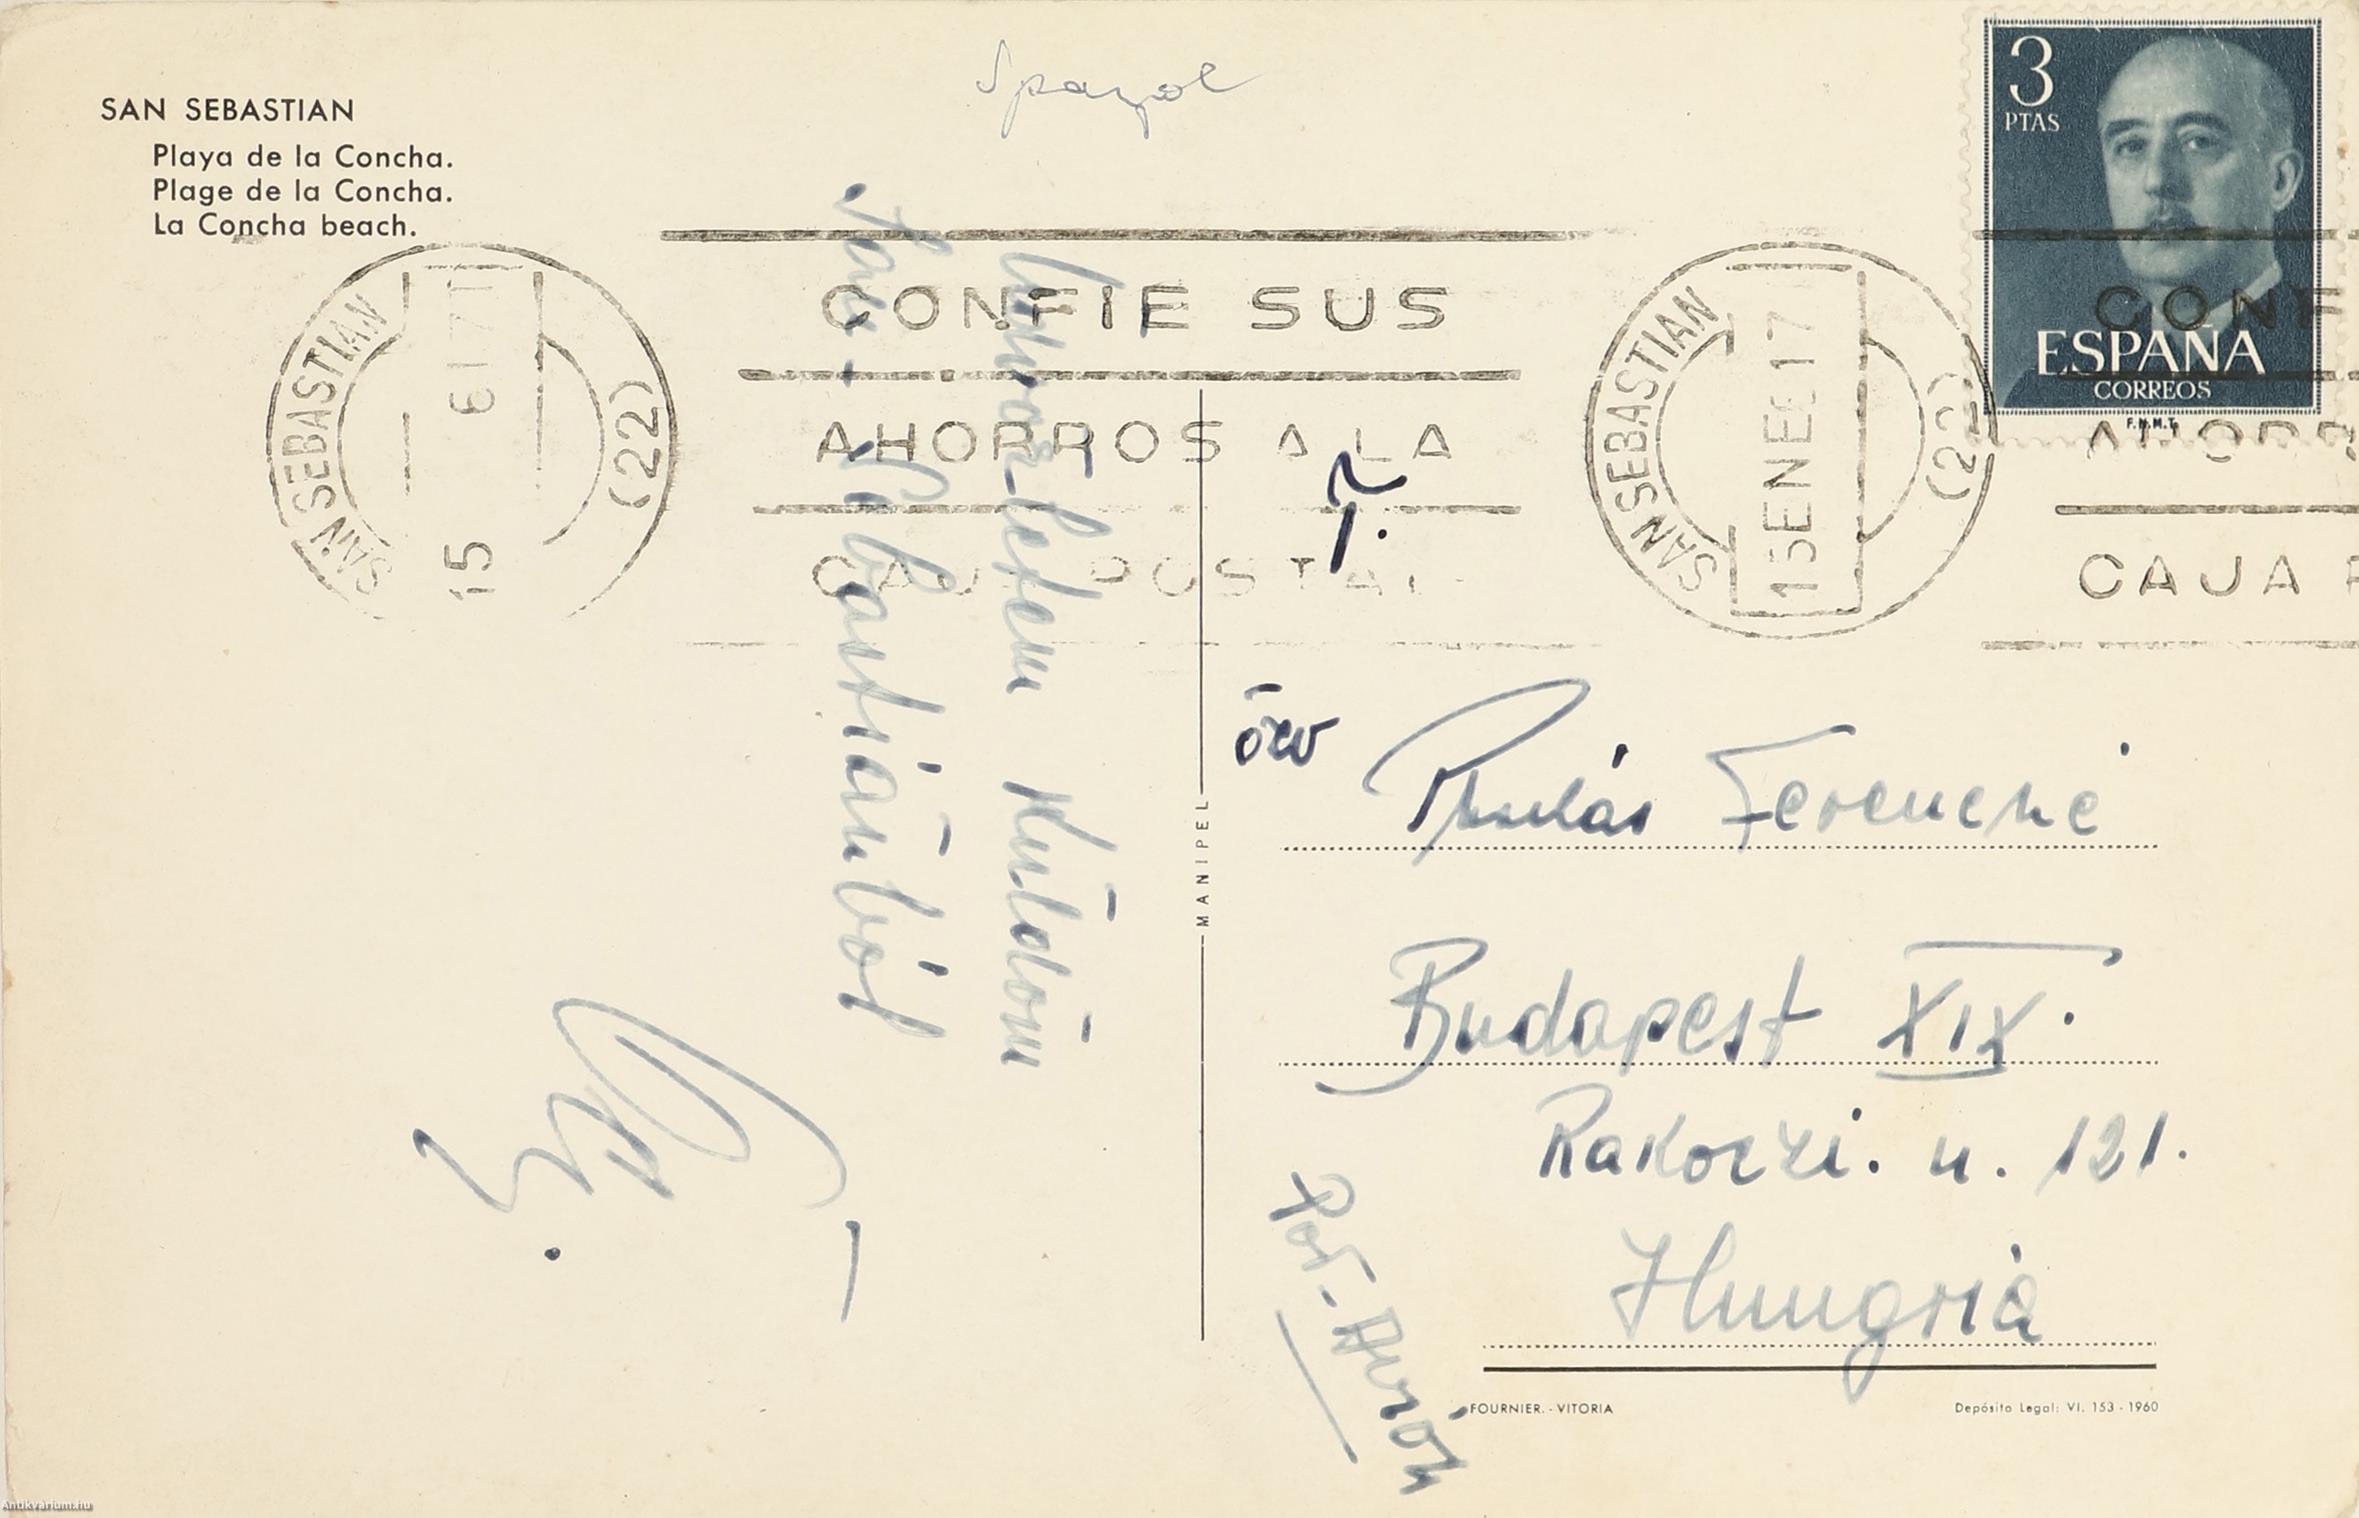 SAN SEBASTIAN
Playa de la Concha.
Plage de la Concha.
La Concha beach.
3
PTAS
ESPAÑA
CORREOS
F.N.M.T.
SAN SEBASTIAN
15
(22)
CONFIE SUS
AHORROS A LA
CAJA POSTAL
SAN SEBASTIAN
15 ENE 6 17
(22)
CONFI
AHORR
CAJA P
küldöm
San-Sebastiánból
MANIPEL
özv
Ferencné
Budapest XIX.
Rakoczi. u. 121.
Hungria
FOURNIER. - VITORIA
Depósito Legal: VI. 153 - 1960
Antikvarium.hu